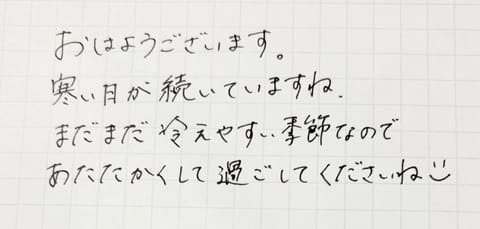 おはようございます。
寒い日が続いていますね.
まだまだ冷えやすい季節なので
あたたかくして過ごしてくださいね